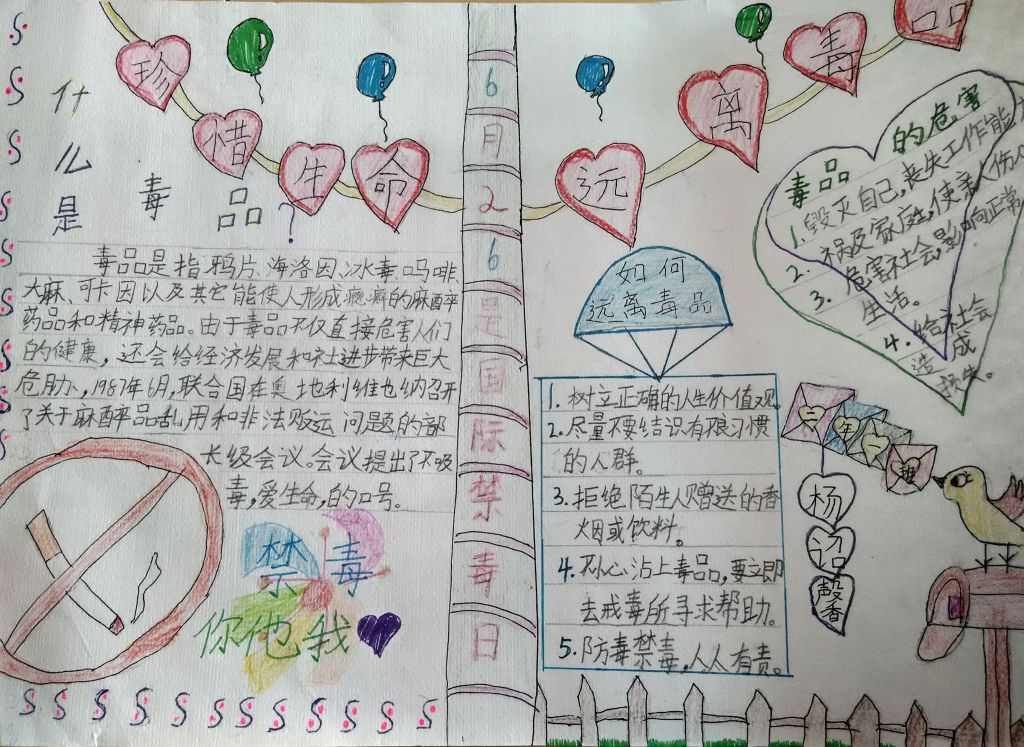 珍惜生命远离毒品
什么是毒品?
毒品是指鸦片、海洛因、冰毒吗啡、
大麻、可卡因以及其它能使人形成瘾癖的麻醉
药品和精神药品。由于毒品不仅直接危害人们
的健康，还会给经济发展和社进步带来巨大
危胁、1987年6月，联合国在奥地利维也纳召开
了关于麻醉品乱用和非法贩运问题的部
长级会议。会议提出了不吸
毒，爱生命，的口号。
禁毒
你他我
6月26是国际禁毒日
如何
远离毒品
1. 树立正确的人生价值观。
2. 尽量不要结识有不良习惯
的人群。
3. 拒绝陌生人赠送的香
烟或饮料。
4. 不小心沾上毒品，要立即
去戒毒所寻求帮助。
5. 防毒禁毒，人人有责。
毒品的危害
1. 毁灭自己，丧失工作能
2. 祸及家庭，使亲人伤
3. 危害社会，影响正常
生活。
4. 给社会
造成
损失。
二年一班
杨
诒
馨